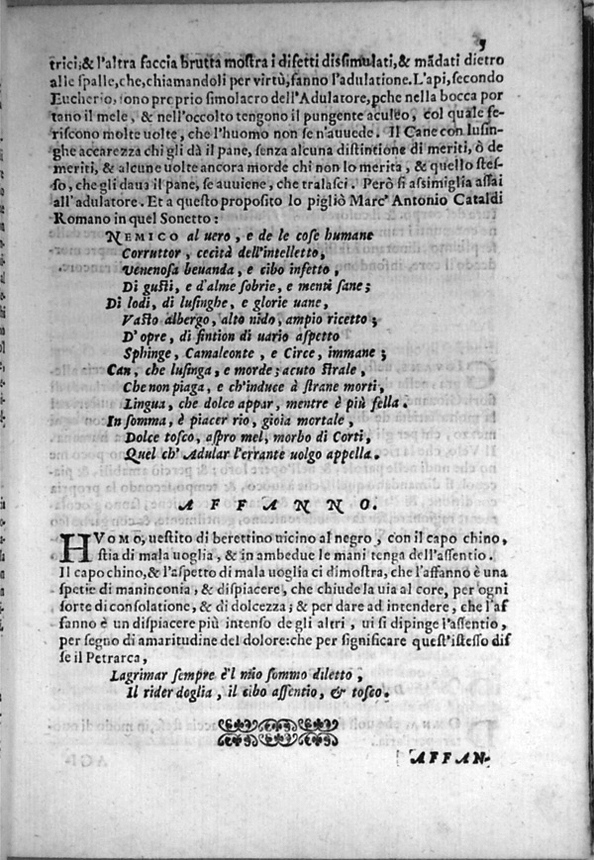 5
trici;& l'altra faccia brutta mostra i difetti dissimulati,& mādati dietro
alle spalle,che,chiamandoli per virtù,fanno l'adulatione.L'api,secondo
Eucherio, sono proprio simolacro dell'Adulatore,pche nella bocca por
tano il mele, & nell'occolto tengono il pungente aculeo, col quale fe-
riscono molte uolte, che l'huomo non se n'auuede. Il Cane con lusin-
ghe accarezza chi gli dà il pane, senza alcuna distintione di meriti, ò de
meriti, & alcune uolte ancora morde chi non lo merita, & quello stes-
so, che gli daua il pane, se auuiene, che tralasci. Però si assimiglia assai
all'adulatore. Et a questo proposito lo pigliò Marc' Antonio Cataldi
Romano in quel Sonetto:
NEMICO al uero, e de le cose humane
Corruttor, cecità dell'intelletto,
Venenosa beuanda, e cibo infetto,
Di gusti, e d'alme sobrie, e menti sane;
Di lodi, di lusinghe, e glorie uane,
Vasto albergo, alto nido, ampio ricetto;
D' opre, di fintion di uario aspetto
Sphinge, Camaleonte, e Circe, immane;
Can, che lusinga, e morde; acuto strale,
Che non piaga, e ch'induce à strane morti,
Lingua, che dolce appar, mentre è più fella.
In somma, è piacer rio, gioia mortale,
Dolce tosco, aspro mel, morbo di Corti,
Quel ch' Adular l'errante uolgo appella.
AFFANNO.
HVOMO, uestito di berettino uicino al negro, con il capo chino,
stia di mala uoglia, & in ambedue le mani tenga dell'assentio.
Il capo chino,& l'aspetto di mala uoglia ci dimostra, che l'affanno è una
spetie di maninconia, & dispiacere, che chiude la uia al core, per ogni
sorte di consolatione, & di dolcezza; & per dare ad intendere, che l'af
fanno è un dispiacere più intenso de gli altri, ui si dipinge l'assentio,
per segno di amaritudine del dolore:che per significare quest'istesso dis
se il Petrarca,
Lagrimar sempre è'l mio sommo diletto,
Il rider doglia, il cibo assentio, & tosco.
AFFAN-